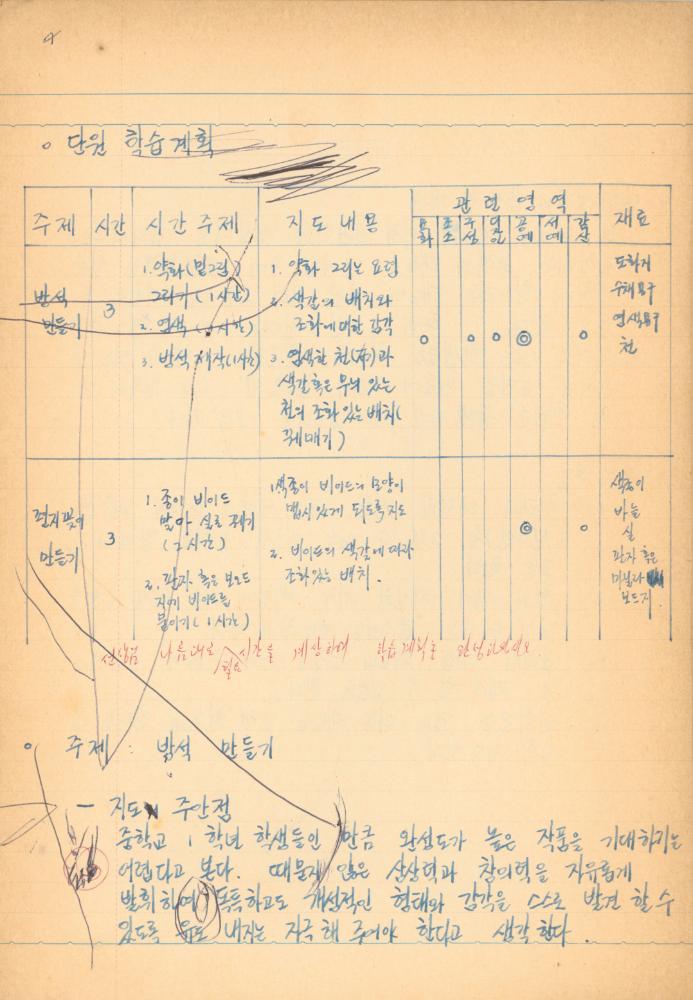 o 단원 학습계획
주제 시간 시간주제 지도내용 관련영역 재료
조소 구성 디자인 공예 서예 감상
방석 만들기
3
1. 약화(밑그림)
그리기 (1시간)
2. 염색 (1시간)
3. 방석 제작(1시간)
1. 약화 그리는 요령
2. 색갈의 배치와
조화에 대한 감각
3. 염색한 천(布)과
색갈 혹은 무늬 있는
천의 조화 있는 배치(
꿰매기)
도화지
수채용구
염색용구
천
만들기
3
1. 종이 비이드
말아 실로 꿰기
(2시간)
2. 판자 혹은 보오드
지에 비이드를
붙이기 (1시간)
1. 색종이 비이드의 모양이
맵시있게 되도록 지도
2. 비이드의 색갈에 따라
조화있는 배치.
색종이
바늘
실
판자 혹은
마닐라
보드지
나름대로 필요 시간을 계상하여 학습계획을
o 주제 : 방석 만들기
— 지도 주안점
중학교 1학년 학생들인 만큼 완성도가 높은 작품을 기대하기는
어렵다고 본다. 때문에 많은 상상력과 창의력을 자유롭게
발휘하여 독특하고도 개성적인 형태와 감각을 스스로 발견 할 수
있도록 유도 내지는 자극해 주어야 한다고 생각한다.